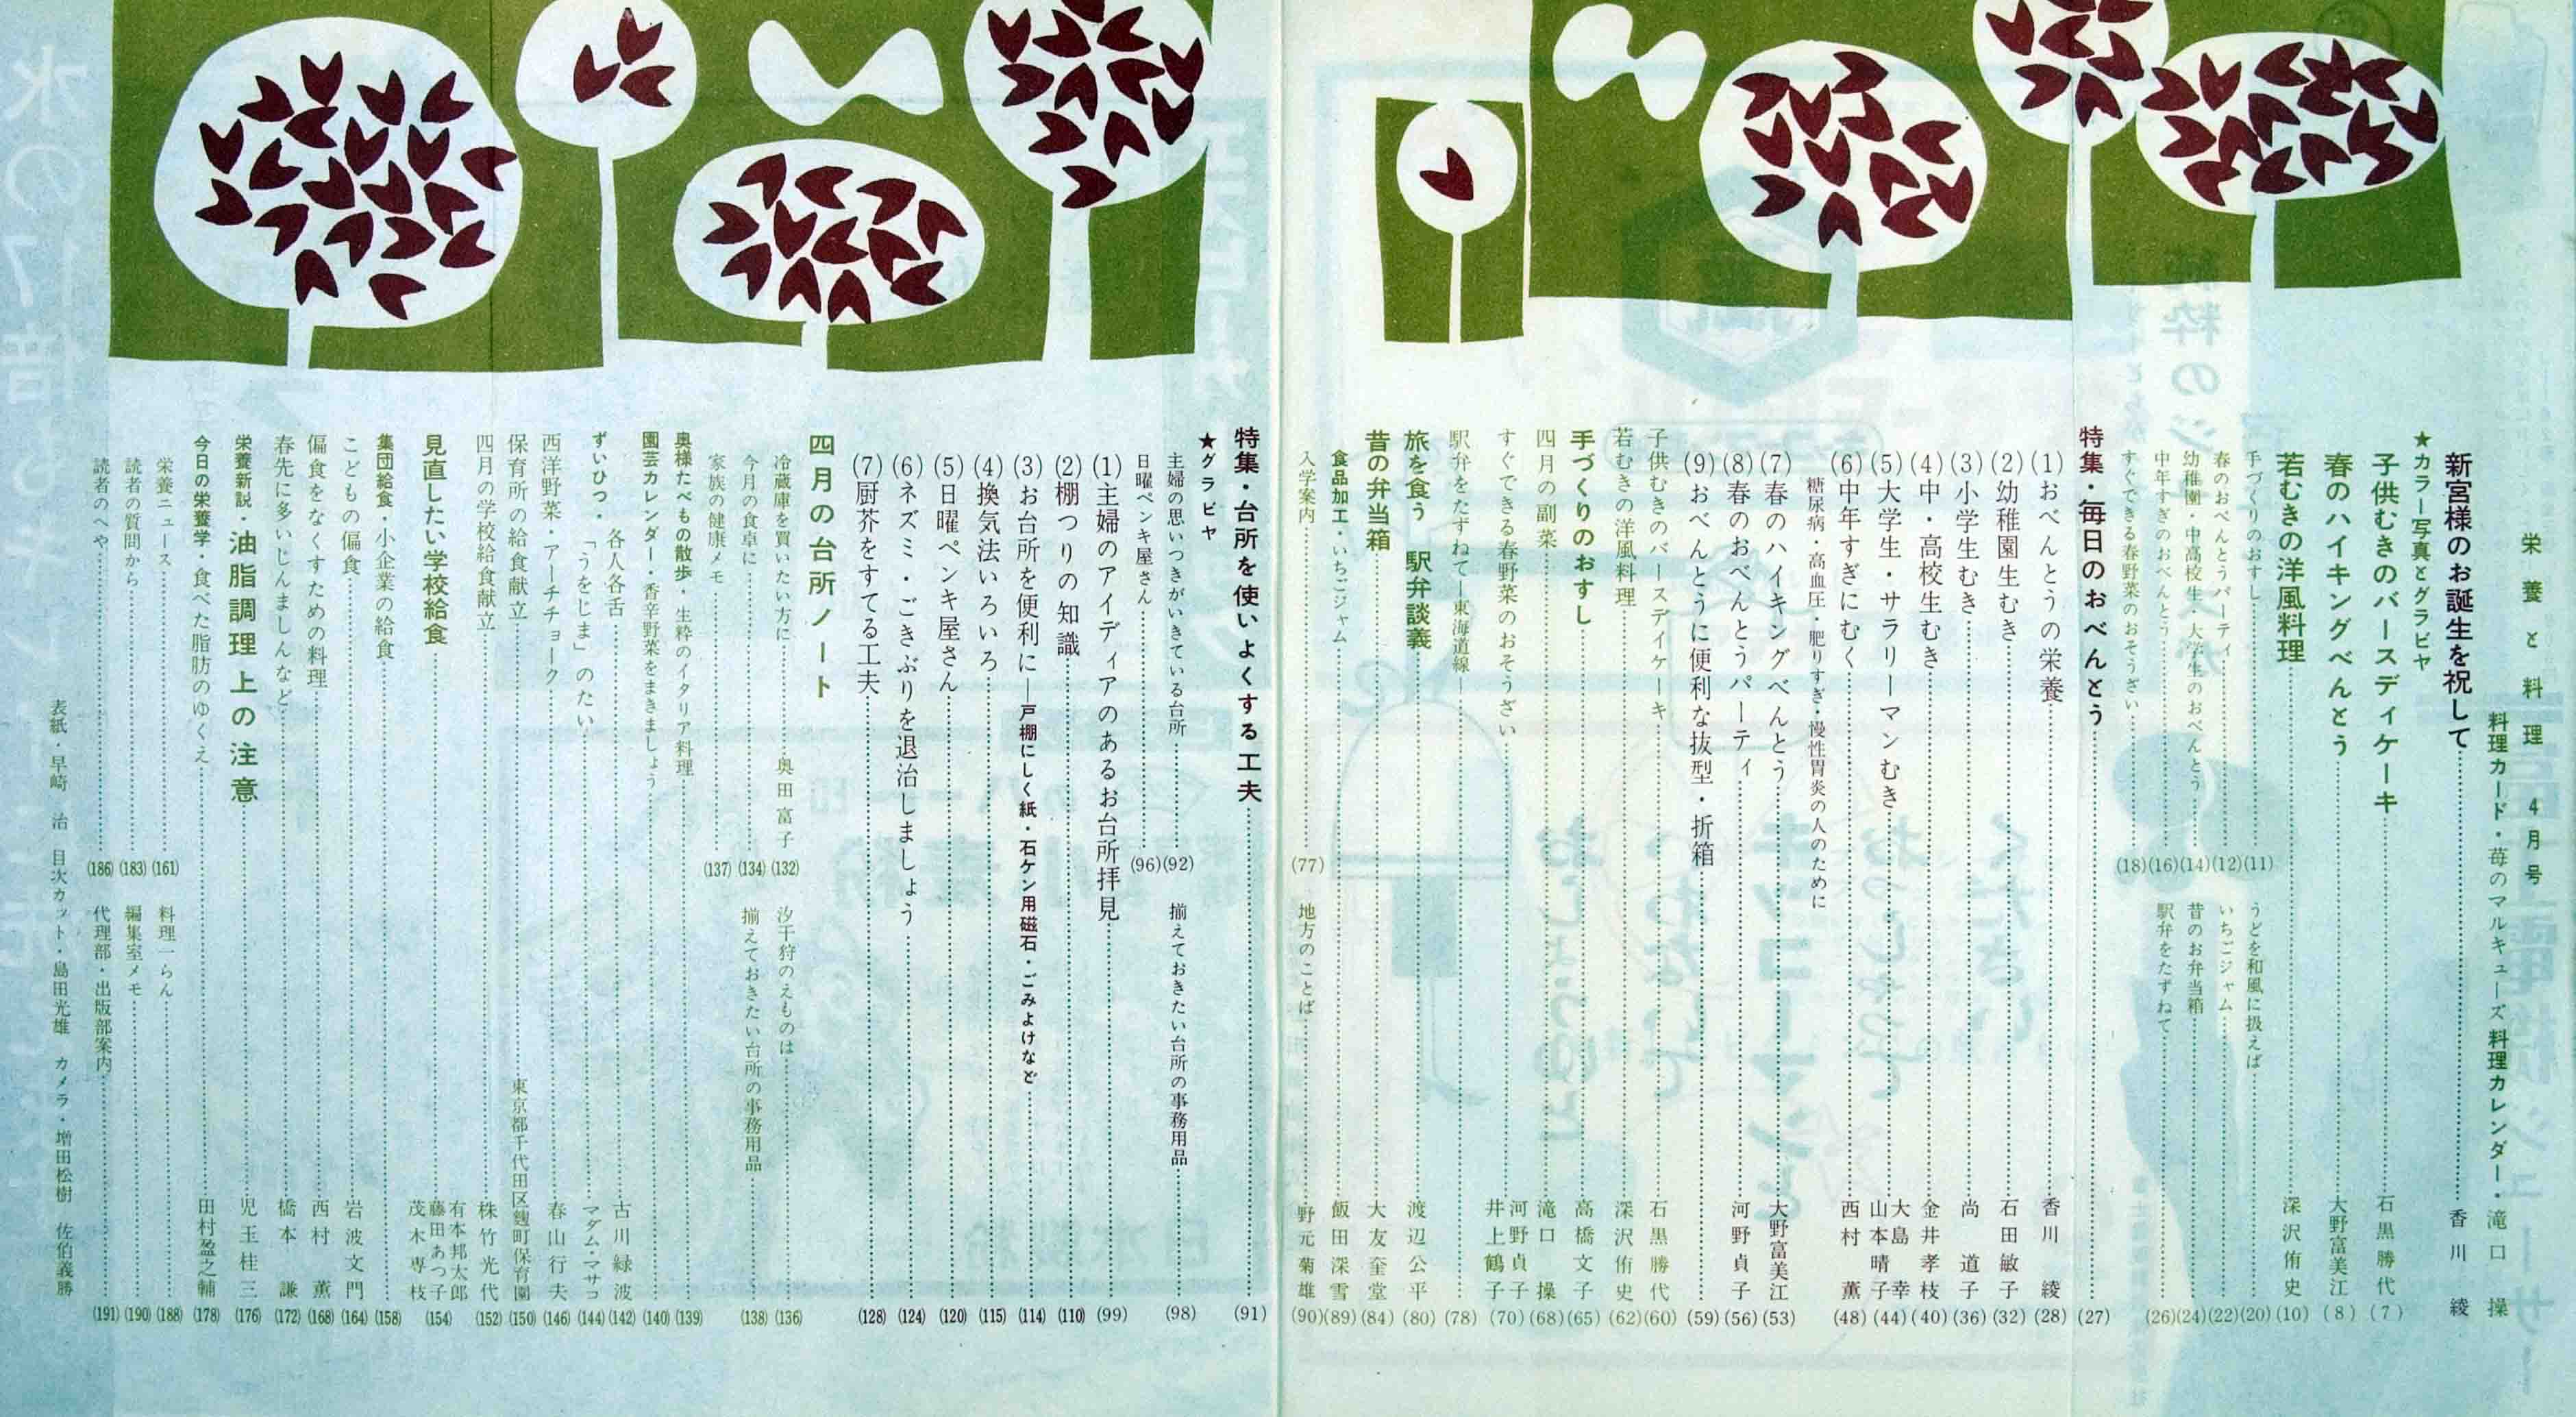 栄養と料理 4月号
料理カード・苺のマルキューズ 料理カレンダー・滝口 操
新宮様のお誕生を祝して 香川 綾
★カラー写真とグラビヤ
子供むきのバースディケーキ 石黒勝代 (7)
春のハイキングべんとう 大野富美江 (8)
若むきの洋風料理 深沢侑史 (10)
手づくりのおすし (11)
うどを和風に扱えば (20)
春のおべんとうパーティ (12)
いちごジャム (22)
幼稚園・中高校生・大学生のおべんとう (14)
昔のお弁当箱 (24)
中年すぎのおべんとう (16)
駅弁をたずねて (26)
すぐできる春野菜のおそうざい (18)
特集・毎日のおべんとう (27)
(1)おべんとうの栄養 香川 綾 (28)
(2)幼稚園生むき 石田敏子 (32)
(3)小学生むき 尚 道子 (36)
(4)中・高校生むき 金井孝枝 (40)
(5)大学生・サラリーマンむき 大島 幸 山本晴子 (44)
(6)中年すぎにむく 西村 薫 (48)
糖尿病・高血圧・肥りすぎ・慢性胃炎の人のために
(7)春のハイキングべんとう 大野富美江 (53)
(8)春のおべんとうパーティ 河野貞子 (56)
(9)おべんとうに便利な抜型・折箱 (59)
子供むきのバースデイケーキ 石黒勝代 (60)
若むきの洋風料理 深沢侑史 (62)
手づくりのおすし 高橋文子 (65)
四月の副菜 滝口 操 (68)
すぐできる春野菜のおそうざい 河野貞子 井上鶴子 (70)
駅弁をたずねて―東海道線― (78)
旅を食う 駅弁談義 渡辺公平 (80)
昔の弁当箱 大友奎堂 (84)
食品加工・いちごジャム 飯田深雪 (89)
入学案内 (77)
地方のことば 野元菊雄 (90)
特集・台所を使いよくする工夫 (91)
★グラビヤ
主婦の思いつきがいきている台所 (92)
揃えておきたい台所の事務用品 (98)
日曜ペンキ屋さん (96)
(1)主婦のアイディアのあるお台所拝見 (99)
(2)棚つりの知識 (110)
(3)お台所を便利に―戸棚にしく紙・石ケン用磁石・ごみよけなど (114)
(4)換気法いろいろ (115)
(5)日曜ペンキ屋さん (120)
(6)ネズミ・ごきぶりを退治しましょう (124)
(7)厨芥をすてる工夫 (128)
四月の台所ノート
冷蔵庫を買いたい方に 奥田富子 (132)
汐干狩のえものは (136)
今月の食卓に (134)
揃えておきたい台所の事務用品 (138)
家族の健康メモ (137)
奥様たべもの散歩・生粋のイタリア料理 (139)
園芸カレンダー・香辛野菜をまきましょう (140)
各人各舌 古川緑波 (142)
ずいひつ・「うをじま」のたい マダム・マサコ (144)
西洋野菜・アーチチョーク 春山行夫 (146)
保育所の給食献立 東京都千代田区麹町保育園 (150)
四月の学校給食献立 株竹光代 (152)
見直したい学校給食 有本邦太郎 藤田あつ子 茂木専枝 (154)
集団給食・小企業の給食 (158)
こどもの偏食 岩波文門 (164)
偏食をなくすための料理 西村 薫 (168)
春先に多いじんましんなど 橋本 謙 (172)
栄養新説・油脂調理上の注意 児玉桂三 (176)
今日の栄養学・食べた脂肪のゆくえ 田村盈之輔 (178)
栄養ニュース (161)
料理一らん (188)
読者の質問から (183)
編集室メモ (190)
読者のへや (186)
代理部・出版部案内 (191)
表紙・早崎 治 目次カット・島田光雄 カメラ・増田松樹 佐伯義勝